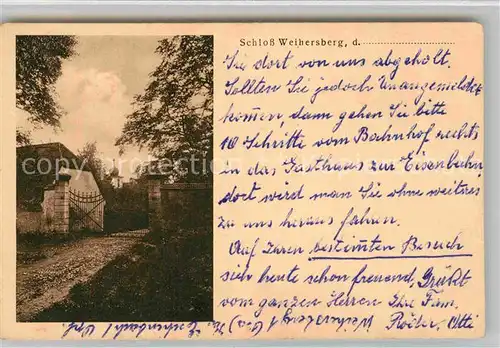 Schloß Weihersberg, d.
Sie dort von uns abgeholt.
Sollten Sie jedoch Unangemeldet
kommen, dann gehen Sie bitte
10 Schritte vom Bahnhof rechts
in das Gasthaus zur Eisenbahn,
dort wird man Sie ohne weiteres
zu uns heraus fahren.
Auf Ihren bestimmten Besuch
sich heute schon freuend, Grüßt
vom ganzen Herzen Ihre Fam.
Röder, Otti